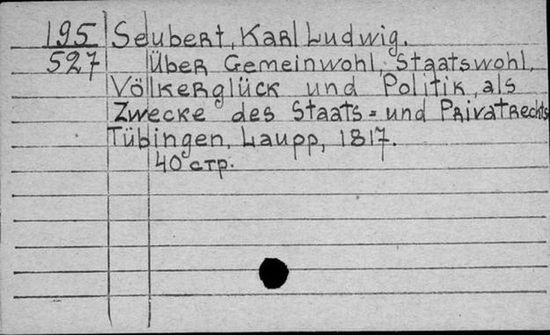 195 Seubert, Karl Ludwig.
527 Über Gemeinwohl, Staatswohl,
Völkerglück und Politik, als
Zwecke des Staats= und Privatrechts
Tübingen, Laupp, 1817.
40 стр.